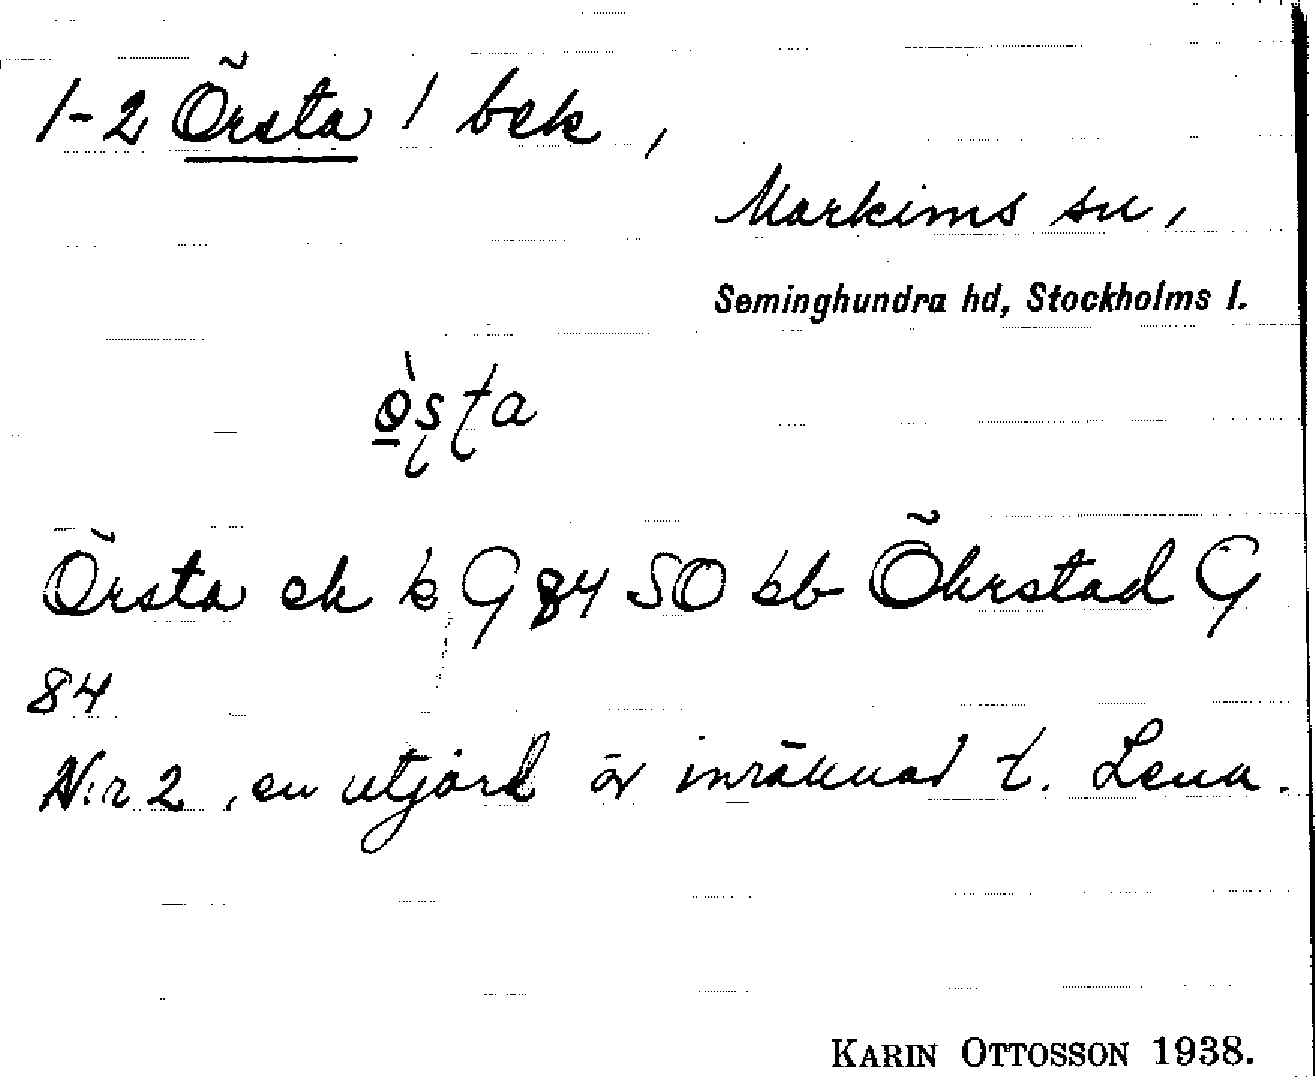 1-2 Örsta / bek,
Markims sn,
Seminghundra hd, Stockholms l.
Örsta ek k G 84 SO kb Öhrstad G
84
N:r 2, en utjord är inräknad t. Lena.
KARIN OTTOSSON 1938.